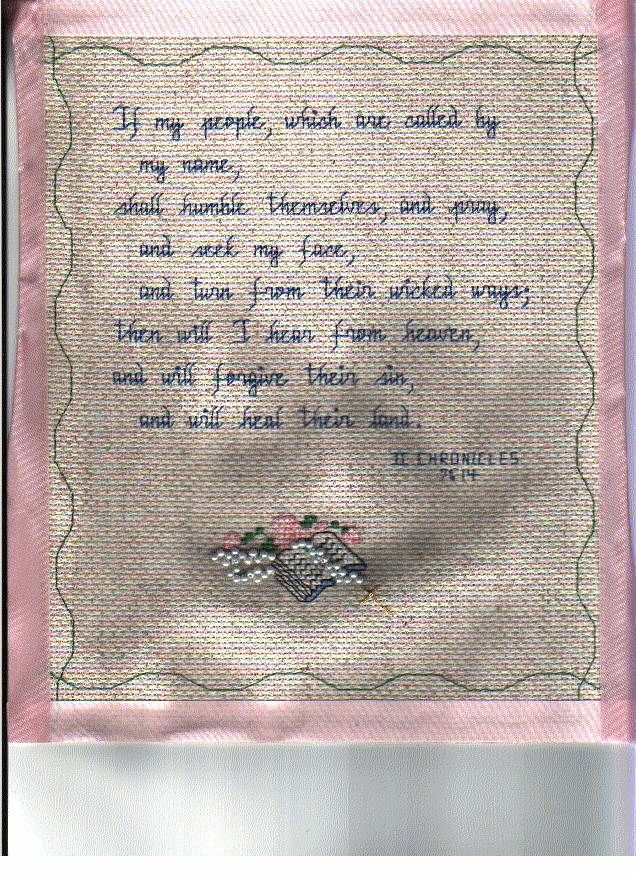 If my people, which are called by
my name,
shall humble themselves, and pray,
and seek my face,
and turn from their wicked ways;
then will I hear from heaven,
and will forgive their sin,
and will heal their land.
II CHRONICLES
7:14